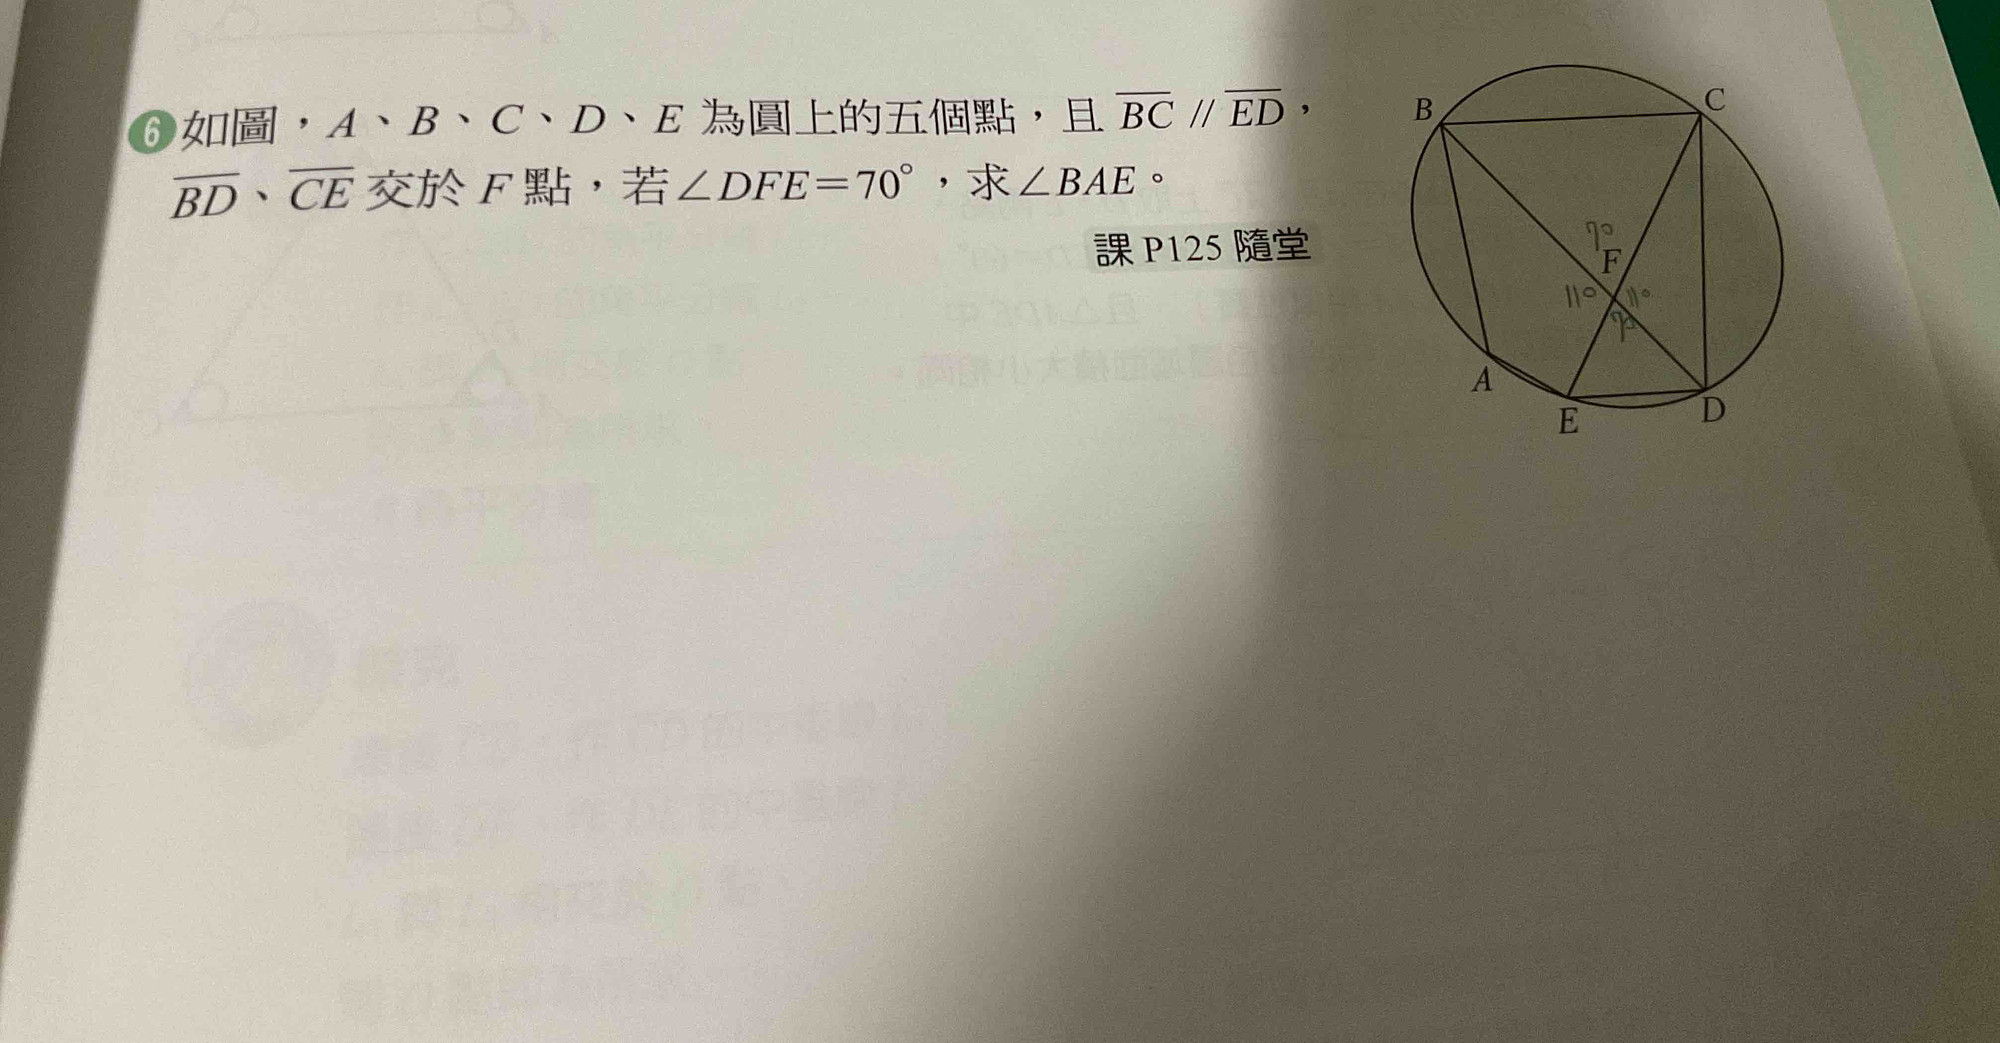 6 如圖，A、B、C、D、E 為圓上的五個點，且 BC // ED，
BD、CE 交於 F 點，若∠DFE＝70°，求∠BAE。
課 P125 隨堂
B
C
70
F
110
110
70
A
E
D